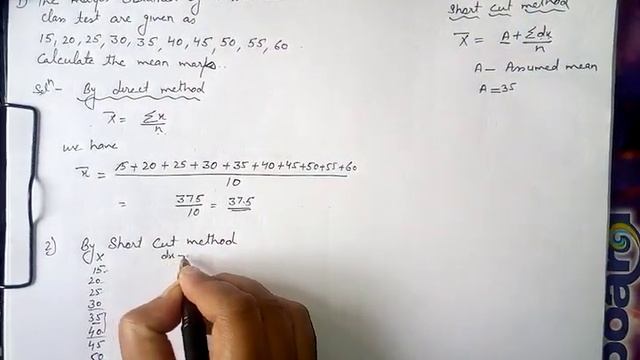 1) The marks obtained by
class test are given as
15, 20, 25, 30, 35, 40, 45, 50, 55, 60.
Calculate the mean marks.
Solⁿ - By direct method
X̄ = Σx/n
we have
x̄ = 15 + 20 + 25 + 30 + 35 + 40 + 45 + 50 + 55 + 60 / 10
= 375/10 = 37.5
2) By Short Cut method
X dx =
15
20
25
30
35
40
45
50
Short Cut method
X̄ = A + Σdx/n
A - Assumed mean
A = 35
board